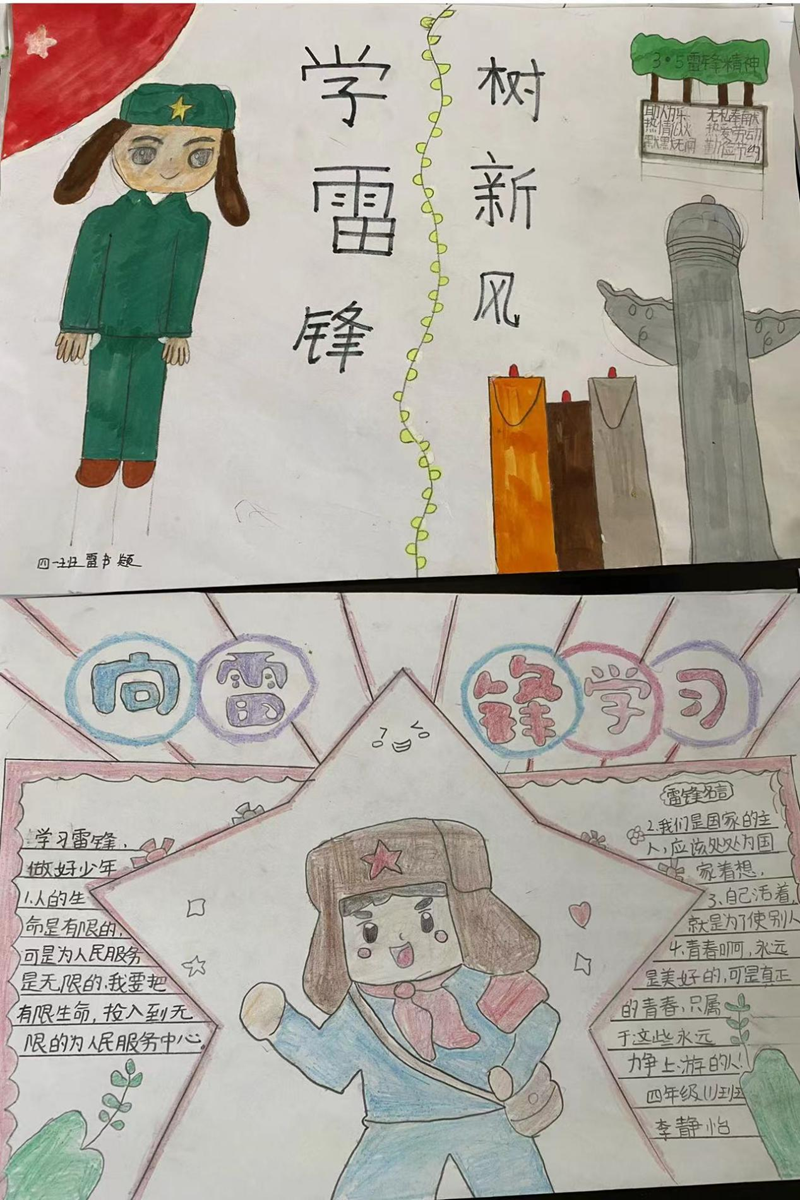 学雷锋
树新风
3·5雷锋精神
助人为乐 无私奉献
热情似火 热爱劳动
默默无闻 勤俭节约
四一班 雷书颖
向雷锋学习
学习雷锋,
做好少年
1.人的生
命是有限的,
可是为人民服务
是无限的.我要把
有限生命,投入到无
限的为人民服务中心.
雷锋名言
2.我们是国家的主
人,应该处处为国
家着想.
3.自己活着,
就是为了使别人
4.青春啊,永远
是美好的,可是真正
的青春,只属
于这些永远
力争上游的人!
四年级(1)班
李静怡